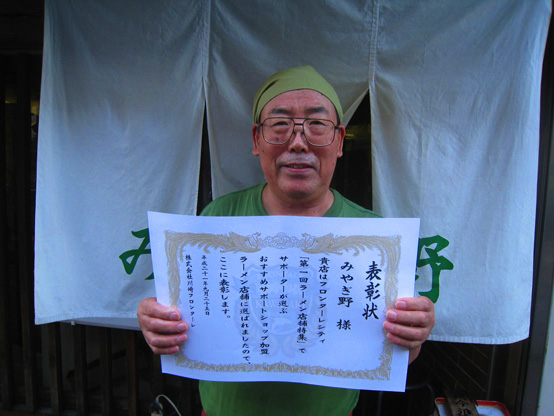 み
野
表彰状
みやぎ野 様
貴店はフロンターレシティ
「第一回ラーメン店舗特集」で
サポーターが選ぶ
おすすめサポートショップ加盟
ラーメン店舗に選ばれましたので、
ここに表彰します。
平成二十一年九月二十五日
株式会社川崎フロンターレ